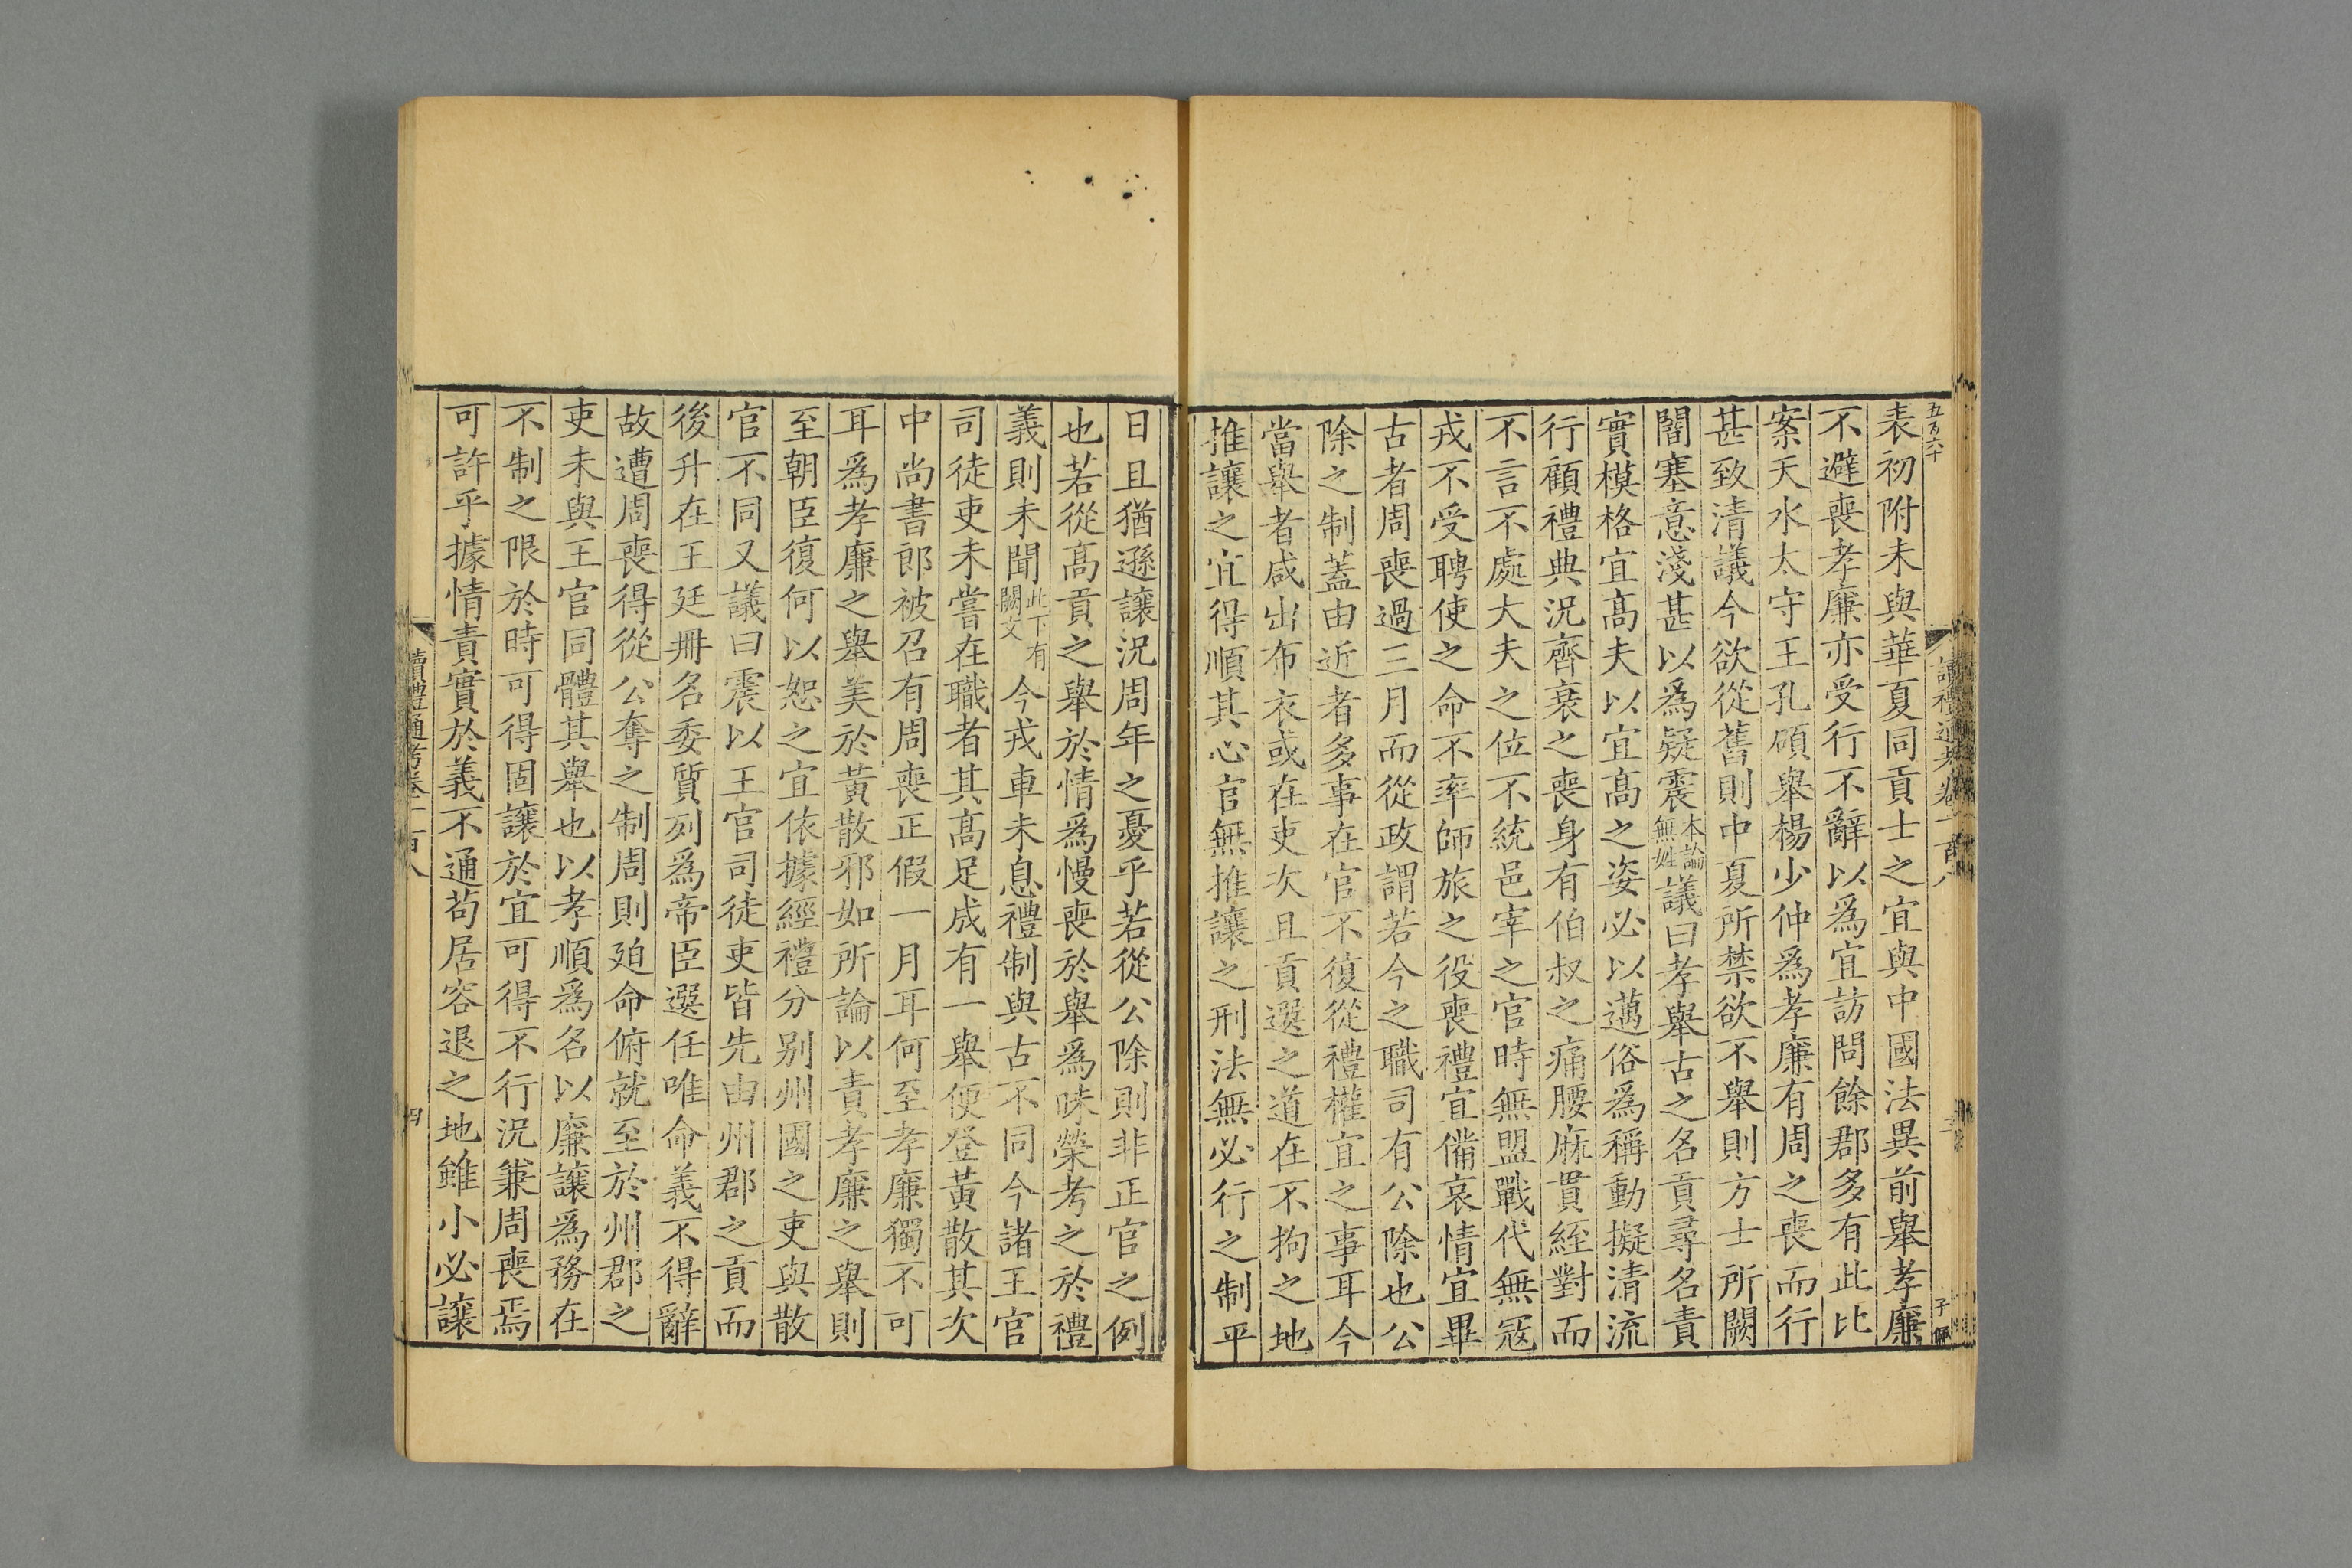 五百六十
表初附未與華夏同貢士之宜與中國法異前舉孝廉
不避喪孝廉亦受行不辭以爲宜訪問餘郡多有此比
案天水太守王孔碩舉楊少仲爲孝廉有周之喪而行
甚致清議今欲從舊則中夏所禁欲不舉則方士所闕
闇塞意淺甚以爲疑震本論無姓議曰孝舉古之名貢尋名責
實模格宜高夫以宜高之姿必以邁俗爲稱動擬清流
行顧禮典況齊衰之喪身有伯叔之痛腰麻貫絰對而
不言不處大夫之位不統邑宰之官時無盟戰代無寇
戎不受聘使之命不率師旅之役喪禮宜備哀情宜畢
古者周喪過三月而從政謂若今之職司有公除也公
除之制蓋由近者多事在官不復從禮權宜之事耳今
當舉者咸出布衣或在吏次且貢選之道在不拘之地
推讓之宜得順其心官無推讓之刑法無必行之制平
日且猶遜讓況周年之憂乎若從公除則非正官之例
也若從高貢之舉於情爲慢喪於舉爲昧榮考之於禮
義則未聞此下有闕文今戎車未息禮制與古不同今諸王官
司徒吏未嘗在職者其高足成有一舉便登黃散其次
中尚書郎被召有周喪正假一月耳何至孝廉獨不可
耳爲孝廉之舉美於黃散邪如所論以責孝廉之舉則
至朝臣復何以恕之宜依據經禮分别州國之吏與散
官不同又議曰震以王官司徒吏皆先由州郡之貢而
後升在王廷冊名委質列爲帝臣選任唯命義不得辭
故遭周喪得從公奪之制周則廹命俯就至於州郡之
吏未與王官同體其舉也以孝順爲名以廉讓爲務在
不制之限於時可得固讓於宜可得不行況兼周喪焉
可許乎據情責實於義不通苟居容退之地雖小必讓
讀禮通考卷一百八
四